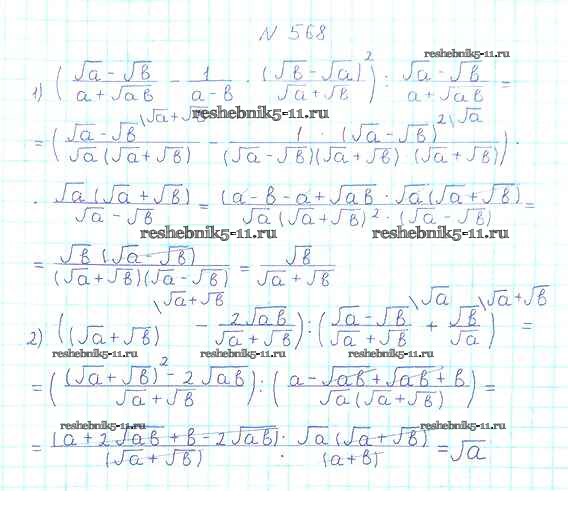 N 568
reshebnik5-11.ru
1) ( (√a − √b)/(a + √ab) − 1/(a − b) · (√b − √a)²/(√a + √b) ) : (√a − √b)/(a + √ab) =
reshebnik5-11.ru
= ( (√a − √b)\√a + √b /(√a (√a + √b)) − 1 · (√a − √b)²\√a /((√a − √b)(√a + √b) (√a + √b)) ) ·
· √a (√a + √b)/(√a − √b) = (a − b − a + √ab · √a (√a + √b)/(√a (√a + √b)² · (√a − √b)) =
reshebnik5-11.ru reshebnik5-11.ru
= √b (√a − √b)/((√a + √b)(√a − √b)) = √b/(√a + √b)
2) ( (√a + √b)\√a + √b − 2√ab/(√a + √b) ) : ( (√a − √b)\√a /(√a + √b) + √b\√a + √b /√a ) =
reshebnik5-11.ru reshebnik5-11.ru reshebnik5-11.ru
= ( ((√a + √b)² − 2√ab)/(√a + √b) ) : ( (a − √ab + √ab + b)/(√a (√a + √b)) ) =
reshebnik5-11.ru reshebnik5-11.ru
= (a + 2√ab + b − 2√ab)/(√a + √b) · √a (√a + √b)/(a + b) = √a